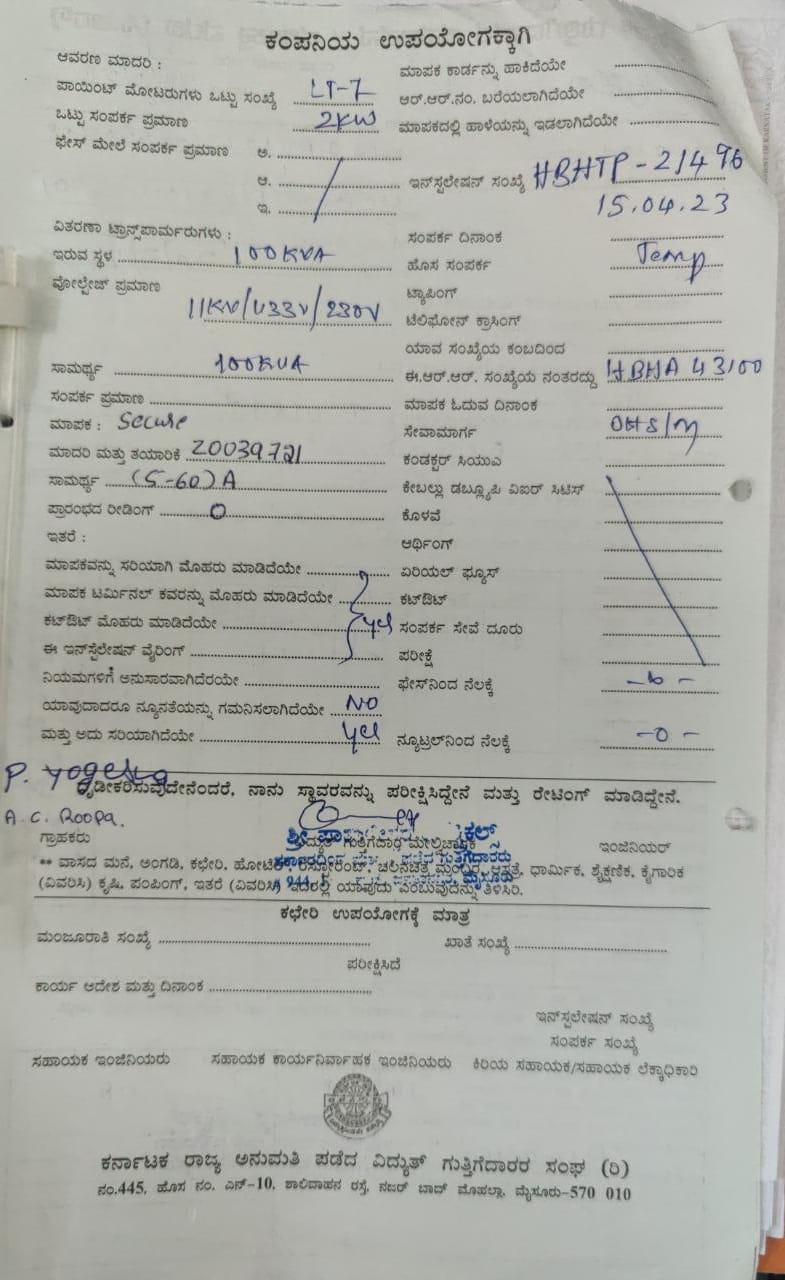 ಕಂಪನಿಯ ಉಪಯೋಗಕ್ಕಾಗಿ
ಆವರಣ ಮಾದರಿ :
ಮಾಪಕ ಕಾರ್ಡನ್ನು ಹಾಕಿದೆಯೇ
ಪಾಯಿಂಟ್ ಮೋಟರುಗಳು ಒಟ್ಟು ಸಂಖ್ಯೆ LT-7
ಆರ್.ಆರ್.ನಂ. ಬರೆಯಲಾಗಿದೆಯೇ
ಒಟ್ಟು ಸಂಪರ್ಕ ಪ್ರಮಾಣ 2KW
ಮಾಪಕದಲ್ಲಿ ಹಾಳೆಯನ್ನು ಇಡಲಾಗಿದೆಯೇ
ಫೇಸ್ ಮೇಲೆ ಸಂಪರ್ಕ ಪ್ರಮಾಣ ಅ.
ಆ.
ಇನ್‌ಸ್ಟಲೇಷನ್ ಸಂಖ್ಯೆ HBHTP-21496
ಇ.
15.04.23
ವಿತರಣಾ ಟ್ರಾನ್ಸ್‌ಪಾರ್ಮರುಗಳು :
ಸಂಪರ್ಕ ದಿನಾಂಕ
ಇರುವ ಸ್ಥಳ 100KVA
ಹೊಸ ಸಂಪರ್ಕ Temp
ವೋಲ್ಟೇಜ್ ಪ್ರಮಾಣ
ಟ್ಯಾಪಿಂಗ್
11KV/433V/230V
ಟೆಲಿಫೋನ್ ಕ್ರಾಸಿಂಗ್
ಯಾವ ಸಂಖ್ಯೆಯ ಕಂಬದಿಂದ
ಸಾಮರ್ಥ್ಯ 100KVA
ಈ.ಆರ್.ಆರ್. ಸಂಖ್ಯೆಯ ನಂತರದ್ದು HBHA 43100
ಸಂಪರ್ಕ ಪ್ರಮಾಣ
ಮಾಪಕ ಓದುವ ದಿನಾಂಕ
ಮಾಪಕ : Secure
ಸೇವಾಮಾರ್ಗ OHS/M
ಮಾದರಿ ಮತ್ತು ತಯಾರಿಕೆ Z0039721
ಕಂಡಕ್ಟರ್ ಸಿಯುಎ
ಸಾಮರ್ಥ್ಯ (5-60)A
ಕೇಬಲ್ಲು ಡಬ್ಲ್ಯೂಪಿ ವಿಐರ್ ಸಿಟಿಸ್
ಪ್ರಾರಂಭದ ರೀಡಿಂಗ್ 0
ಕೊಳವೆ
ಇತರೆ :
ಆರ್ಥಿಂಗ್
ಮಾಪಕವನ್ನು ಸರಿಯಾಗಿ ಮೊಹರು ಮಾಡಿದೆಯೇ
ಏರಿಯಲ್ ಫ್ಯೂಸ್
ಮಾಪಕ ಟರ್ಮಿನಲ್ ಕವರನ್ನು ಮೊಹರು ಮಾಡಿದೆಯೇ
ಕಟ್‌ಔಟ್
ಕಟ್‌ಔಟ್ ಮೊಹರು ಮಾಡಿದೆಯೇ yes
ಸಂಪರ್ಕ ಸೇವೆ ದೂರು
ಈ ಇನ್‌ಸ್ಟಲೇಷನ್ ವೈರಿಂಗ್
ಪರೀಕ್ಷೆ
ನಿಯಮಗಳಿಗೆ ಅನುಸಾರವಾಗಿದೆರಯೇ
ಫೇಸ್‌ನಿಂದ ನೆಲಕ್ಕೆ
ಯಾವುದಾದರೂ ನ್ಯೂನತೆಯನ್ನು ಗಮನಿಸಲಾಗಿದೆಯೇ NO
ಮತ್ತು ಅದು ಸರಿಯಾಗಿದೆಯೇ yes
ನ್ಯೂಟ್ರಲ್‌ನಿಂದ ನೆಲಕ್ಕೆ -0-
P. Yogesha
ದೃಢೀಕರಿಸುವುದೇನೆಂದರೆ, ನಾನು ಸ್ಥಾವರವನ್ನು ಪರೀಕ್ಷಿಸಿದ್ದೇನೆ ಮತ್ತು ರೇಟಿಂಗ್ ಮಾಡಿದ್ದೇನೆ.
A.C. Roopa.
ಗ್ರಾಹಕರು ವಿದ್ಯುತ್ ಗುತ್ತಿಗೆದಾರ ಮೇಲ್ವಿಚಾರಕ ಇಂಜಿನಿಯರ್
** ವಾಸದ ಮನೆ, ಅಂಗಡಿ, ಕಛೇರಿ, ಹೋಟೆಲ್, ರೆಸ್ಟೋರೆಂಟ್, ಚಲನಚಿತ್ರ ಮಂದಿರ, ಆಸ್ಪತ್ರೆ, ಧಾರ್ಮಿಕ, ಶೈಕ್ಷಣಿಕ, ಕೈಗಾರಿಕ
(ವಿವರಿಸಿ) ಕೃಷಿ, ಪಂಪಿಂಗ್, ಇತರೆ (ವಿವರಿಸಿ) ಇದರಲ್ಲಿ ಯಾವುದು ಎಂಬುವುದನ್ನು ತಿಳಿಸಿರಿ.
ಕಛೇರಿ ಉಪಯೋಗಕ್ಕೆ ಮಾತ್ರ
ಮಂಜೂರಾತಿ ಸಂಖ್ಯೆ ಖಾತೆ ಸಂಖ್ಯೆ
ಪರೀಕ್ಷಿಸಿದೆ
ಕಾರ್ಯ ಆದೇಶ ಮತ್ತು ದಿನಾಂಕ
ಇನ್‌ಸ್ಟಲೇಷನ್ ಸಂಖ್ಯೆ
ಸಂಪರ್ಕ ಸಂಖ್ಯೆ
ಸಹಾಯಕ ಇಂಜಿನಿಯರು ಸಹಾಯಕ ಕಾರ್ಯನಿರ್ವಾಹಕ ಇಂಜಿನಿಯರು ಕಿರಿಯ ಸಹಾಯಕ/ಸಹಾಯಕ ಲೆಕ್ಕಾಧಿಕಾರಿ
ಕರ್ನಾಟಕ ರಾಜ್ಯ ಅನುಮತಿ ಪಡೆದ ವಿದ್ಯುತ್ ಗುತ್ತಿಗೆದಾರರ ಸಂಘ (ರಿ)
ನಂ.445, ಹೊಸ ನಂ. ಎನ್-10, ಶಾಲಿವಾಹನ ರಸ್ತೆ, ನಜರ್ ಬಾದ್ ಮೊಹಲ್ಲಾ, ಮೈಸೂರು-570 010